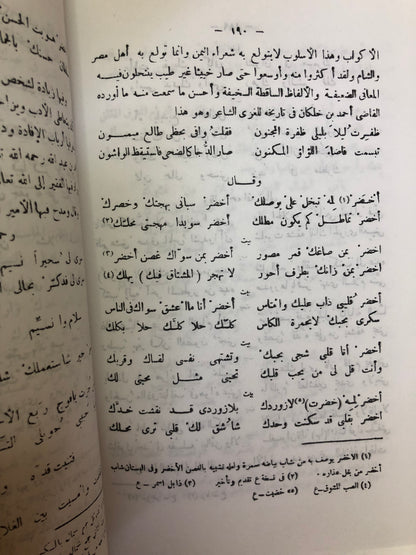 — ١٩٠ —
الاكواب وهذا الاسلوب لا يتولع به شعراء اليمن وانما تولع به أهل مصر
والشام ولقد أكثروا منه وأوسعوا حتى صار خبيثا غير طيب ينتحلون فيه
المعاني الضعيفة والالفاظ الساقطة السخيفة وأحسن ما سمعت منه ما أورده
القاضي أحمد بن خلكان في تاريخه للغزى الشاعر وهو هذا
ظفيرت ليلا بليلى ظفرة المجنون فقلت وافى بحظي طالع ميمون
تبسمت فاضاء اللؤلؤ المكنون صار الدجا كالضحى فاستيقظ الواشون
وقال
أخضر (١) لمه تبخل على بوصلك أخضر سباني بهجتك وخصرك
أخضر تماطل كم يكون مطلك أخضر سويدا مهجتي محلتك (٢)
بيت
اخضر بمن صاغك قمر مصور أخضر بمن سواك غصن أخضر (٣)
اخضر بمن زانك بطرف أحور لا تهجر (المشتاق فيك) يهلك (٤)
بيت
أخضر قلبي ذاب عليك وانتاس أخضر أنا مااعشق سواك في الناس
سكري بحبك لا بخمرة الكاس كلك حلا كلك حلا بكلك
بيت
اخضر أنا قلبي شجي بحبك وتشتهي نفسي لقاك وقربك
وأنت قل لي من يحب قلبك تحبني مثل محبتي لك
بيت
أخضر ليه (خضرت) (٥) لازوردك بلازوردي قد نقشت خدك
اخضر بقلبي قد سكنت وحدك شاشق لك قلبي ترى محلك
(١) الاخضر يوصف به من شاب بياضه سمرة ولعله تشبيه بالغصن الأخضر وفي البستان شاب
أخضر من بقل عذاره. (٢) في نسخة ع تقديم وتأخير (٣) ذابل اسمر – ع
(٤) الصب للشوق – ع (٥) خضبت – ع